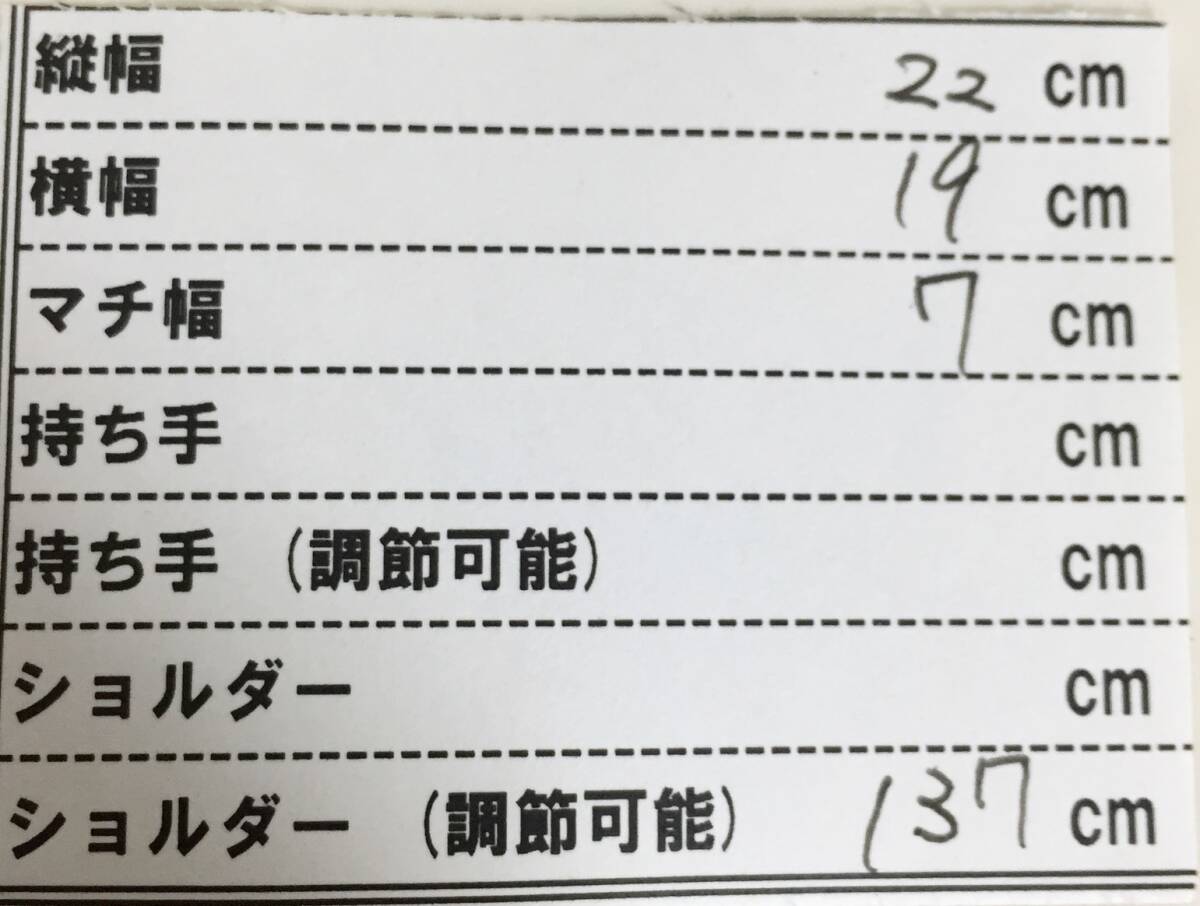 縦幅 22 cm
横幅 19 cm
マチ幅 7 cm
持ち手 cm
持ち手 (調節可能) cm
ショルダー cm
ショルダー (調節可能) 137 cm